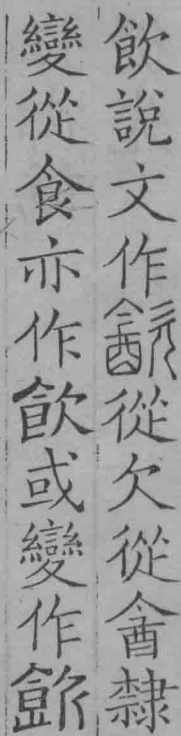 飲說文作㱃從欠從酓隸
變從食亦作飲或變作𩚜